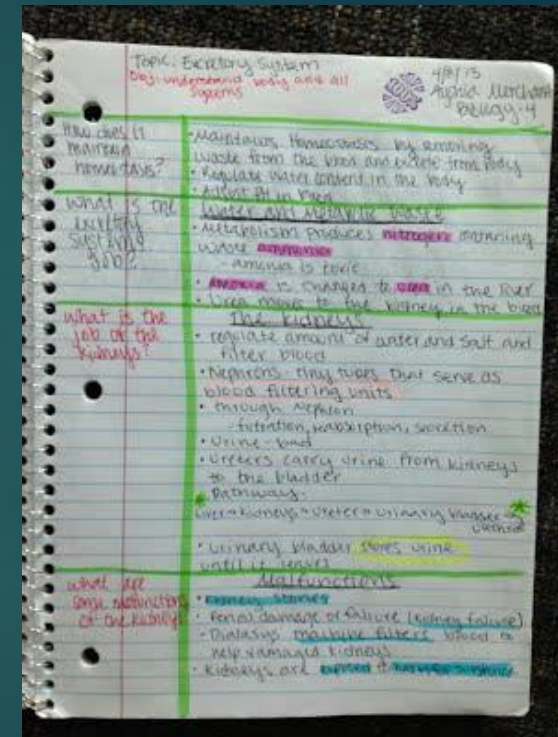 Topic: Excretory System
Obj: understand body and all
systems
4/8/13
Merchant
Biology-4
How does it
maintain
homeostasis?
• Maintains Homeostasis by removing
waste from the blood and excrete from body
• Regulate water content in the body
• Adjust PH in
What is the
excretory
systems
job?
Water and Metabolic Waste
• Metabolism produces nitrogen containing
waste ammonia
- amonia is toxic
• Amonia is changed to urea in the liver
• Urea moves to the kidney in the blood
What is the
job of the
kidneys?
The Kidneys
• regulate amount of water and salt and
filter blood
• Nephrons - tiny tubes that serve as
blood filtering units
• through nephron
- filtration, reabsorption, secretion
• Urine - bad
• Ureters carry urine from kidneys
to the bladder
* Pathway:
Liver → kidneys → ureter → urinary bladder →
urethra
• Urinary bladder stores urine
until it leaves
What are
some malfunctions
of the kidney?
Malfunctions
• Kidney stones
• Renal damage or failure (kidney failure)
- Dialasys machine filters blood to
help damaged kidneys
• Kidneys are exposed to